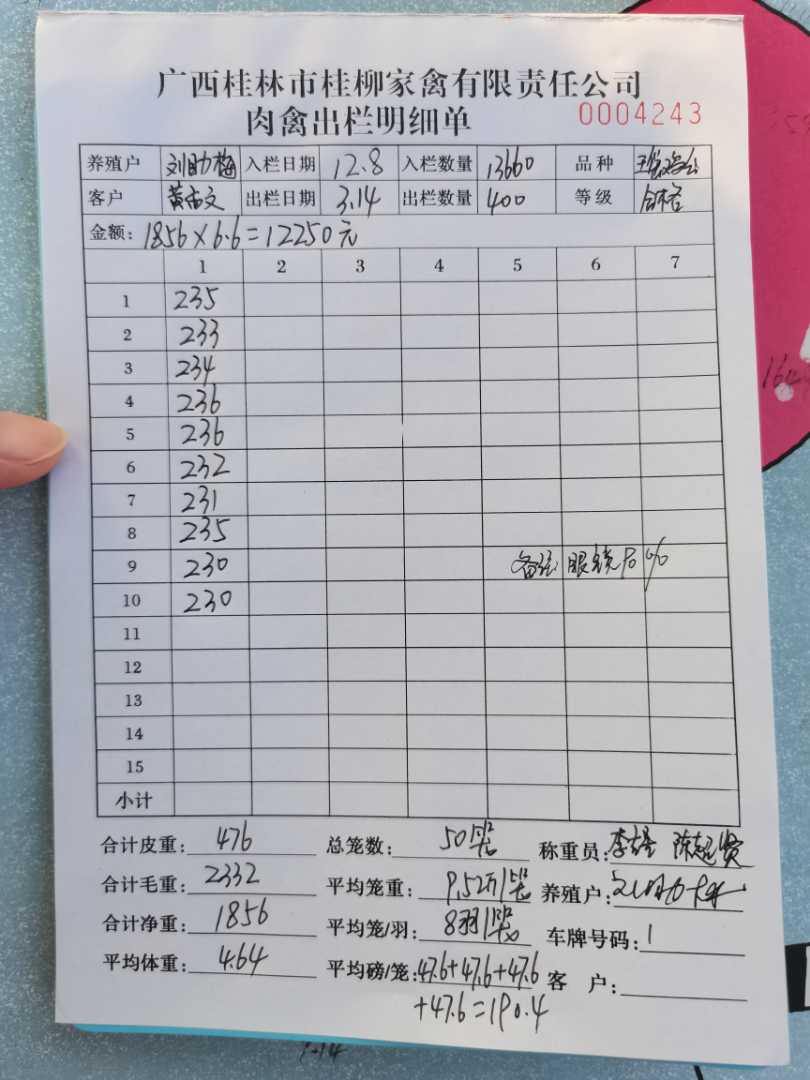 广西桂林市桂柳家禽有限责任公司
肉禽出栏明细单 0004243
养殖户 刘助梅 入栏日期 12.8 入栏数量 13660 品种
客户 黄尚文 出栏日期 3.14 出栏数量 400 等级 合格
金额: 1856×6.6=12250元
1 2 3 4 5 6 7
1 235
2 233
3 234
4 236
5 236
6 232
7 231
8 235
9 230 备注 眼镜 %
10 230
11
12
13
14
15
小计
合计皮重: 476 总笼数: 50笼 称重员:
合计毛重: 2332 平均笼重: 9.52 养殖户: 刘助梅
合计净重: 1856 平均笼/羽: 8羽/笼 车牌号码: 1
平均体重: 4.64 平均磅/笼: 47.6+47.6+47.6 客 户:
+47.6=190.4